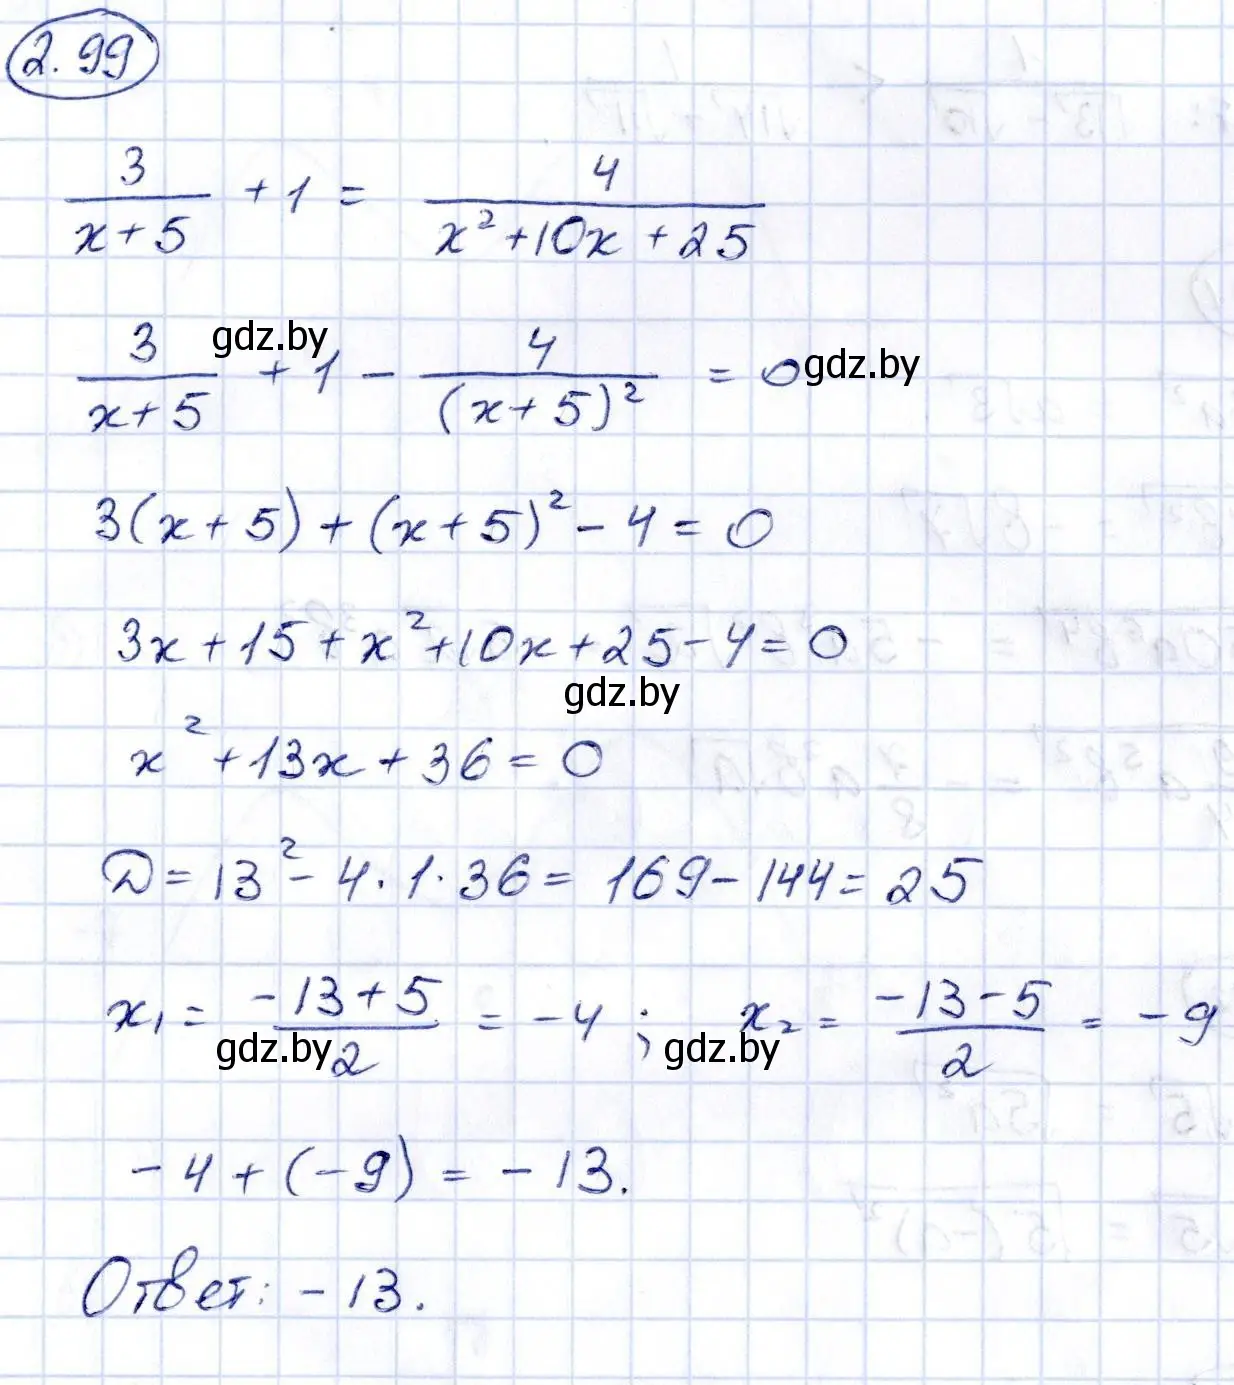 2.99
3/(x+5) + 1 = 4/(x²+10x+25)
3/(x+5) + 1 - 4/(x+5)² = 0
gdz.by gdz.by
3(x+5)+(x+5)²-4=0
3x+15+x²+10x+25-4=0
gdz.by
x²+13x+36=0
D=13²-4·1·36=169-144=25
x₁= (-13+5)/2 = -4; x₂= (-13-5)/2 = -9
gdz.by gdz.by
-4+(-9)=-13.
Ответ: -13.